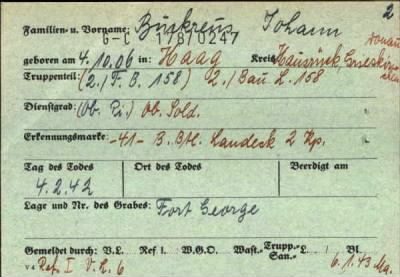 2
Familien- u. Vorname: Buskreus Johann
G-L 178/0247
geboren am 4.10.06 in: Haag Kreis Hausruck, Grieskirchen
Donau
Truppenteil: (2./F.B. 158) 2./Bau L. 158
Dienstgrad: (Ob. Pi.) Ob. Sold.
Erkennungsmarke: -41- B. Btl. Landeck 2 Kp.
Tag des Todes Ort des Todes Beerdigt am
4.2.42
Lage und Nr. des Grabes: Fort George
Gemeldet durch: V.L. Ref I W.G.O. Wast.-Trupp.-L. Bl.
San.-
V4 Ref. I V.L. 6 6.1.43 Ma.